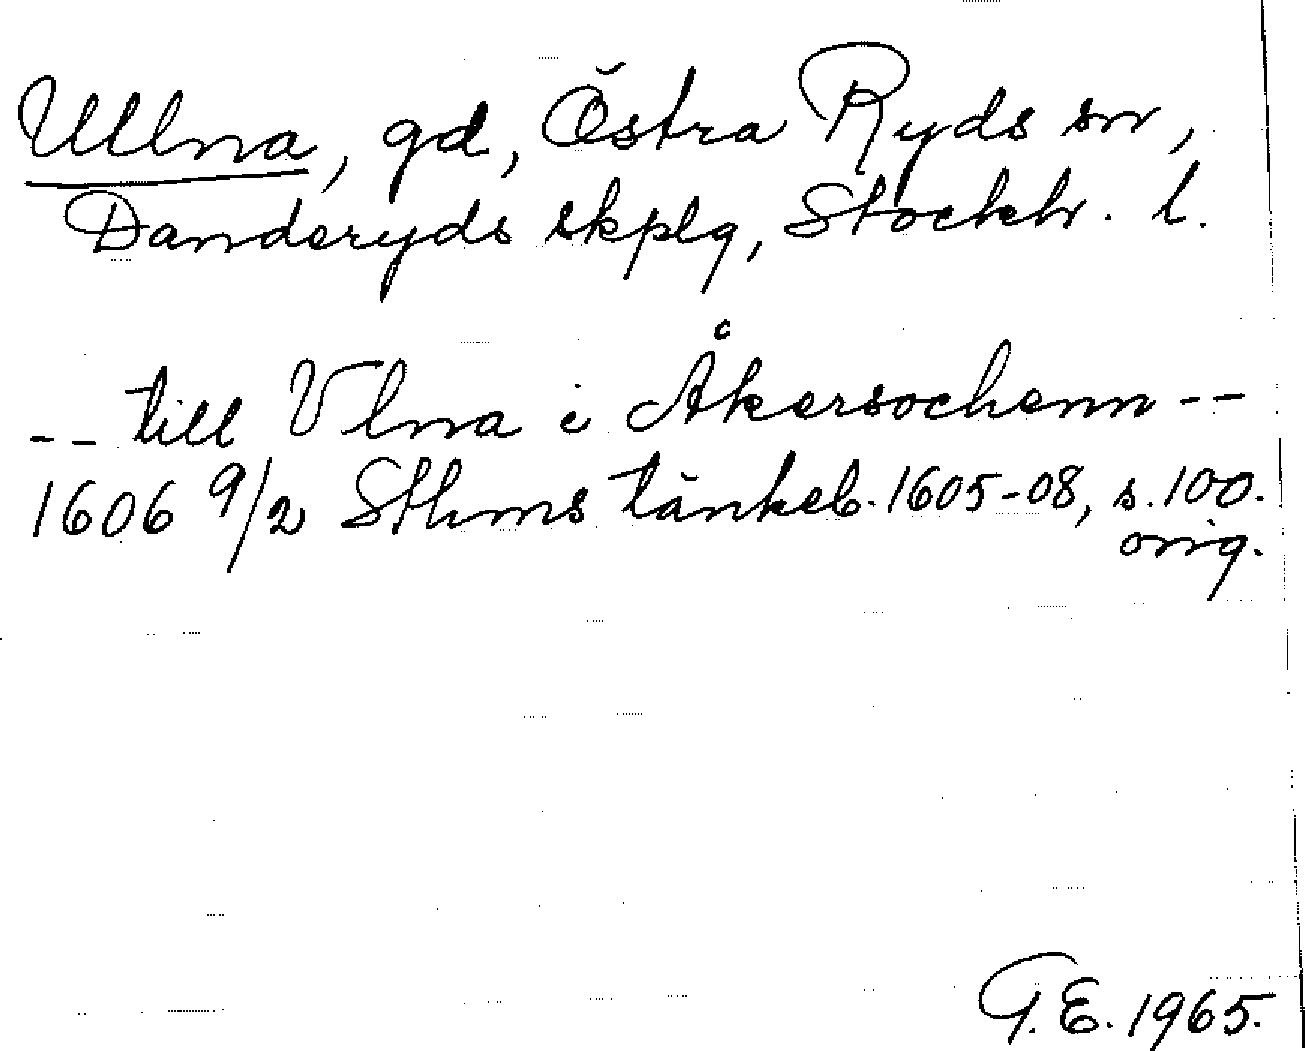 Ullna, gd, Östra Ryds sn,
Danderyds skplg, Stockh. l.
-- till Vlna i Åkersochenn --
1606 9/2 Sthms tänkeb. 1605-08, s. 100.
orig.
G. E. 1965.